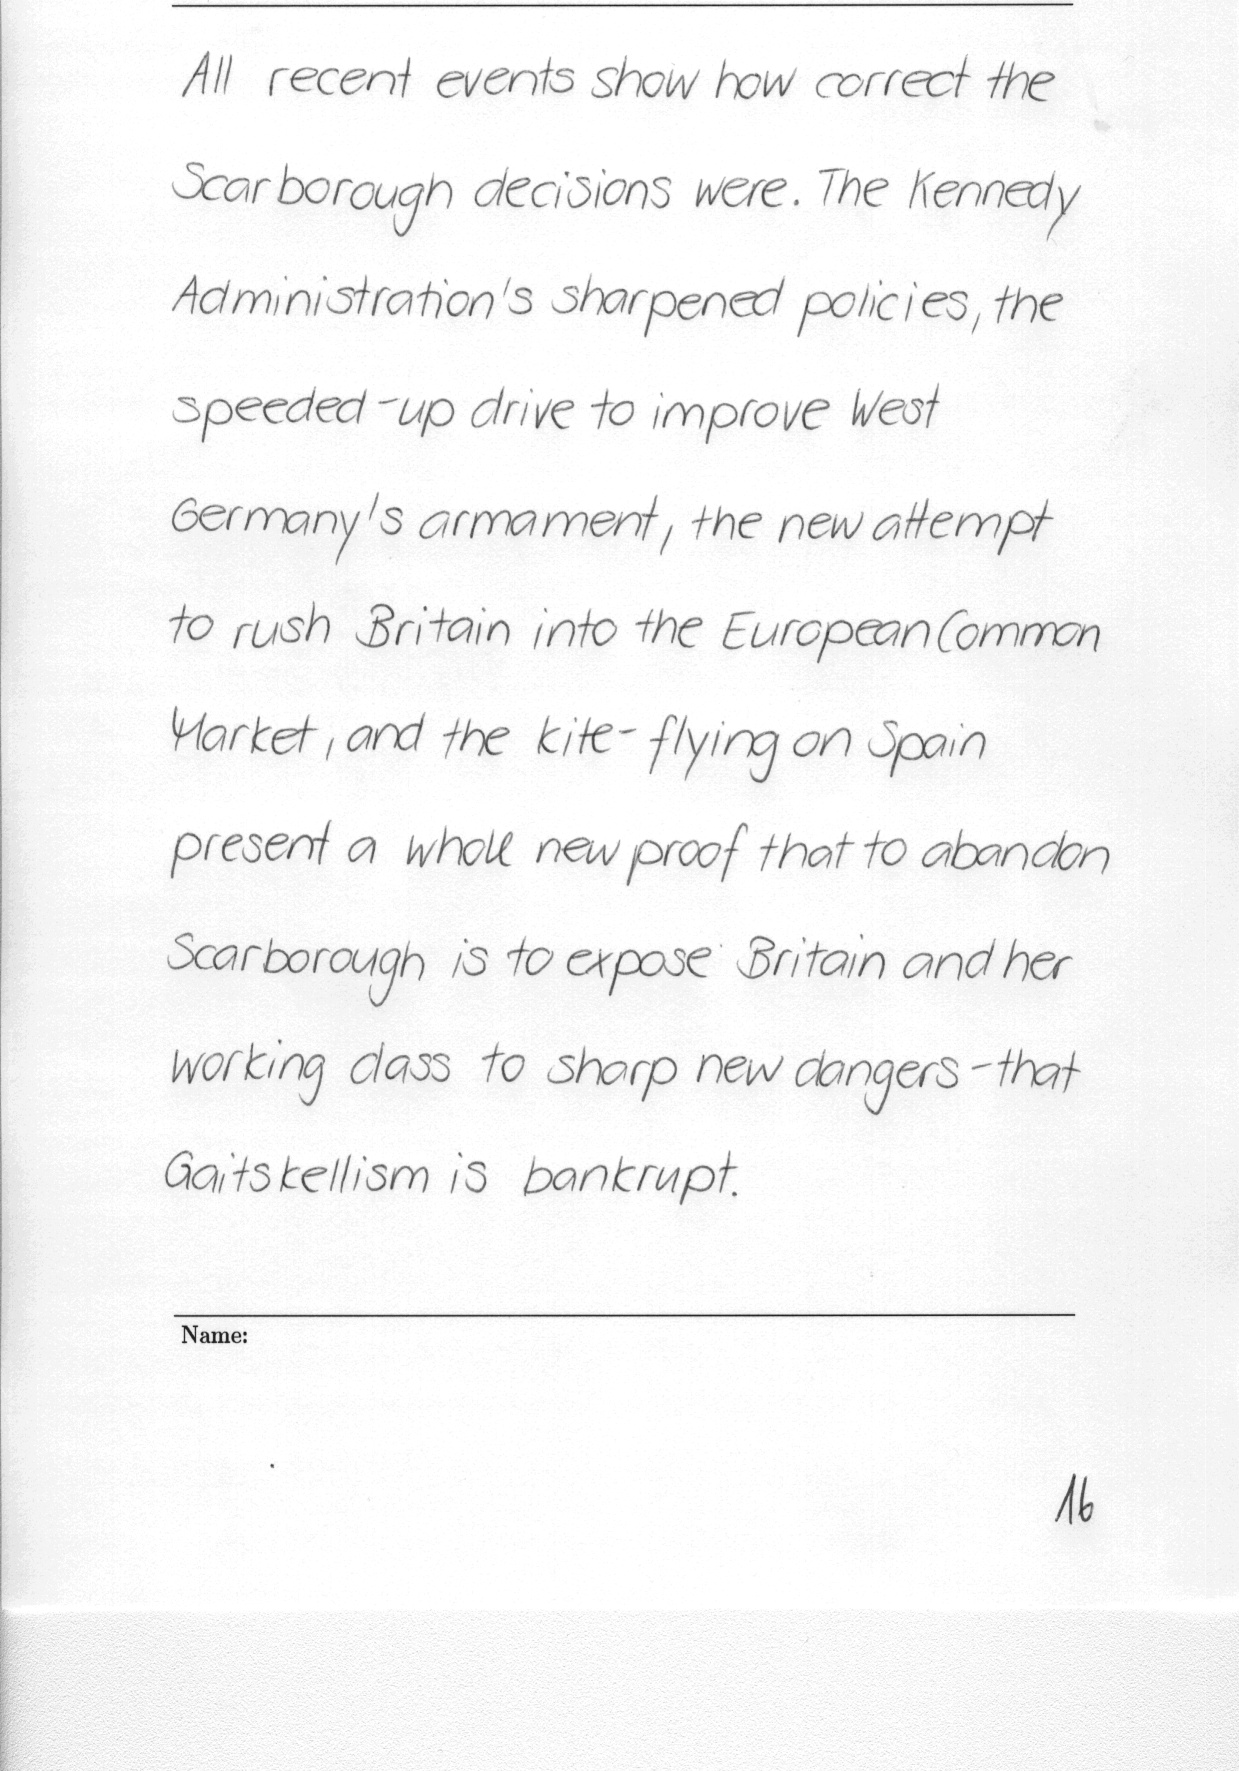 All recent events show how correct the
Scarborough decisions were. The Kennedy
Administration's sharpened policies, the
speeded-up drive to improve West
Germany's armament, the new attempt
to rush Britain into the European Common
Market, and the kite-flying on Spain
present a whole new proof that to abandon
Scarborough is to expose Britain and her
working class to sharp new dangers - that
Gaitskellism is bankrupt.
Name:
16